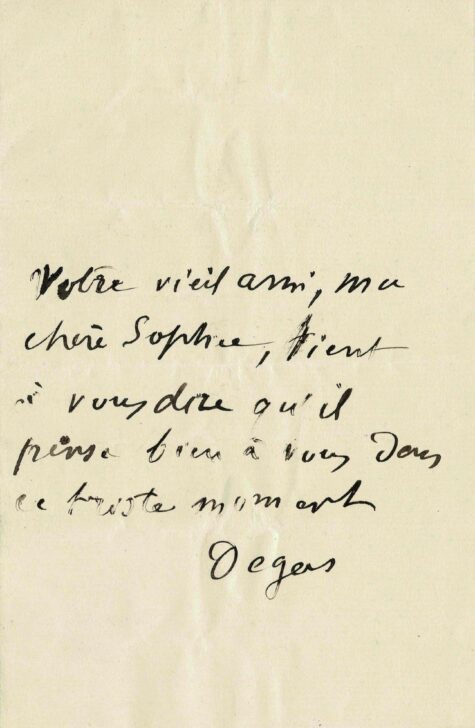 Votre vieil ami, ma
chère Sophie, tient
à vous dire qu'il
pense bien à vous dans
ce triste moment
Degas